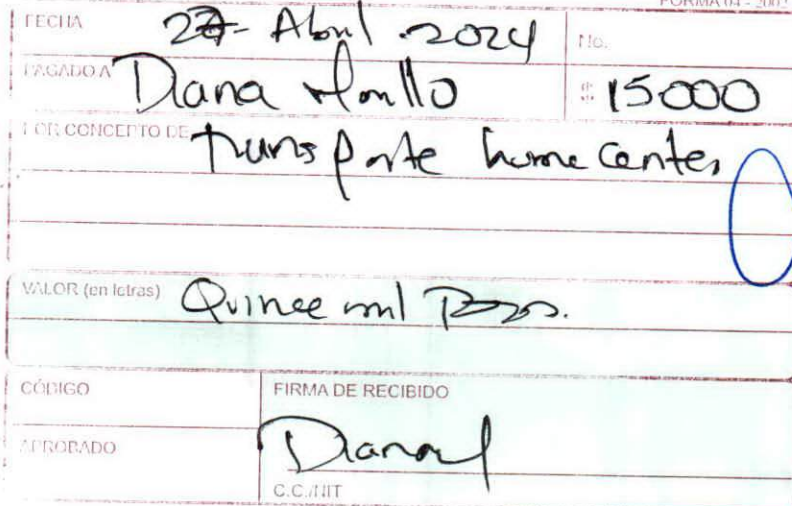 FORMA 04 - 2002
FECHA 27 - Abril . 2024 No.
PAGADO A Diana $ 15000
POR CONCEPTO DE transporte home center
VALOR (en letras) Quince mil Pesos.
CÓDIGO FIRMA DE RECIBIDO
APROBADO Diana
C.C./NIT